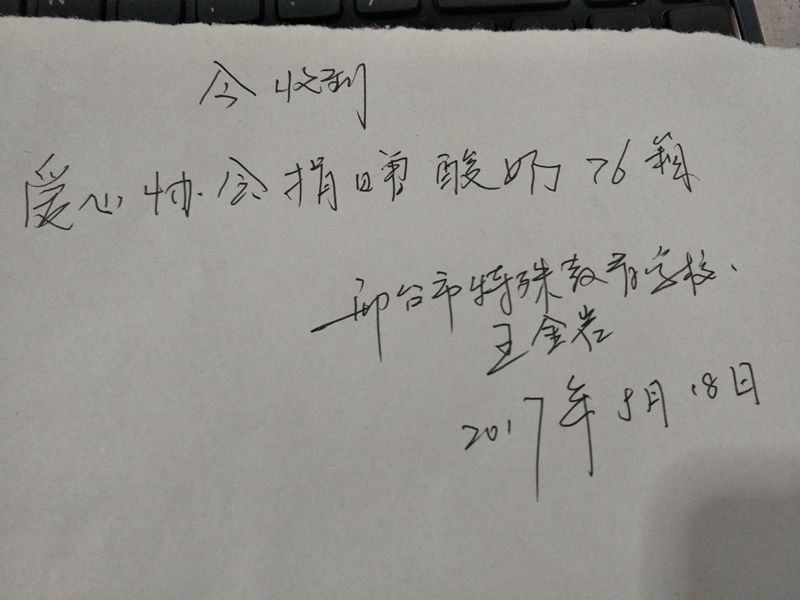 今收到
爱心协会捐赠酸奶76箱
邢台市特殊教育学校.
王金岩
2017年5月18日